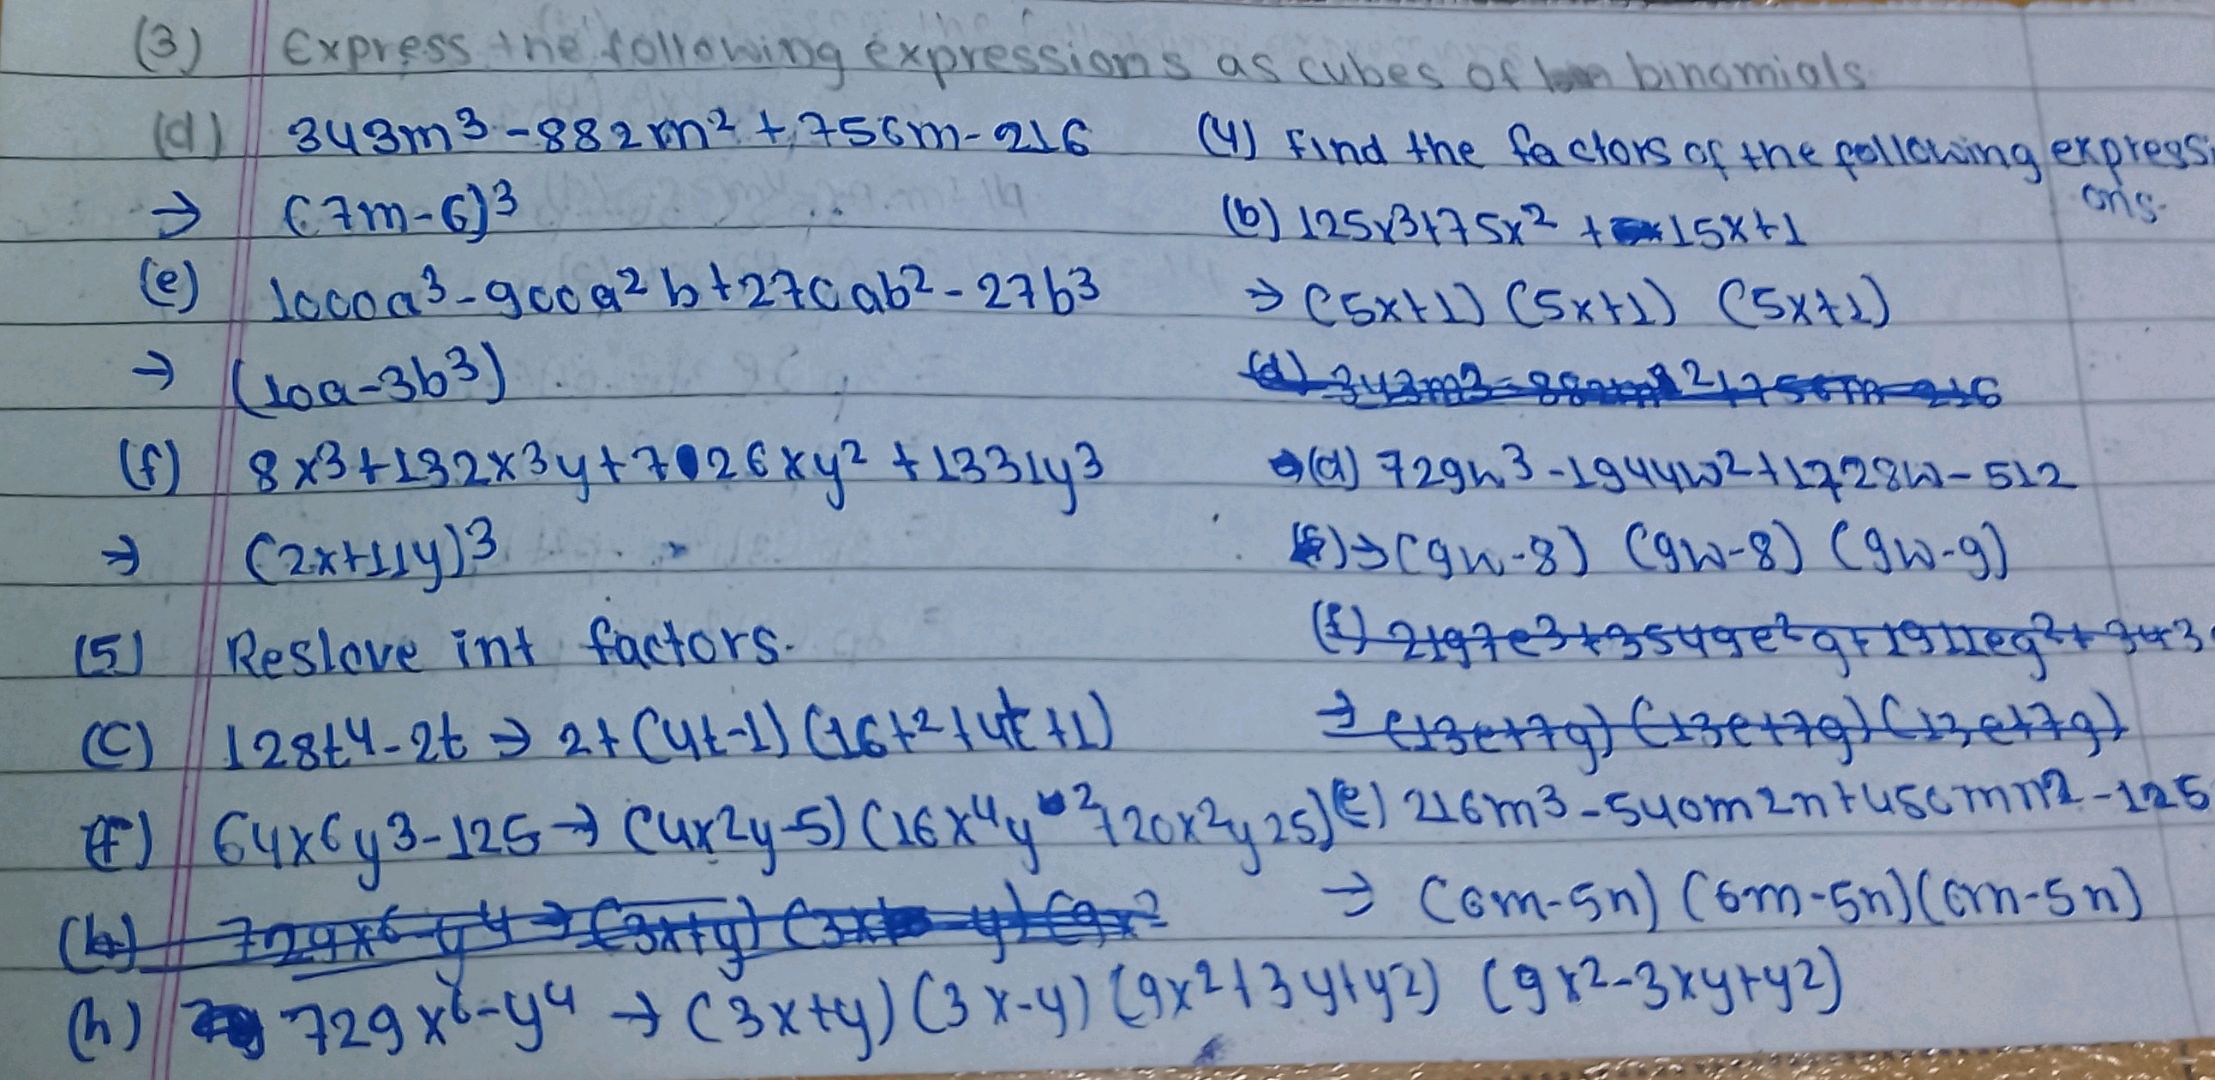 (3) Express the following expressions as cubes of binomials
(d) 343m3-882m2+756m-216
⇒ (7m-6)3
(e) 1000a3-900a2b+270ab2-27b3
→ (10a-3b3)
(f) 8x3+132x3y+726xy2+1331y3
⇒ (2x+11y)3
(5) Reslove int factors.
(C) 128t4-2t ⇒ 2t(4t-1)(16t2+4t+1)
(f) 64x6y3-125 → (4x2y-5)(16x4y2+20x2y25)
(h) 729x6-y4 → (3x+y) (3x-y) (9x2
(h) 729x6-y4 → (3x+y)(3x-y)(9x2+3y+y2) (9x2-3xy+y2)
(4) Find the factors of the following expressi
ons.
(b) 125x3+75x2+15x+1
⇒ (5x+1) (5x+1) (5x+1)
(d) 343m3-882m2+756m-216
(d) 729w3-1944w2+1728w-512
⇒(9w-8) (9w-8) (9w-9)
(f) 2197e3+3549e2g+1911eg2+343
⇒ (13e+7g)(13e+7g)(13e+7g)
(e) 216m3-540m2n+450mn2-125
⇒ (6m-5n) (6m-5n)(6m-5n)